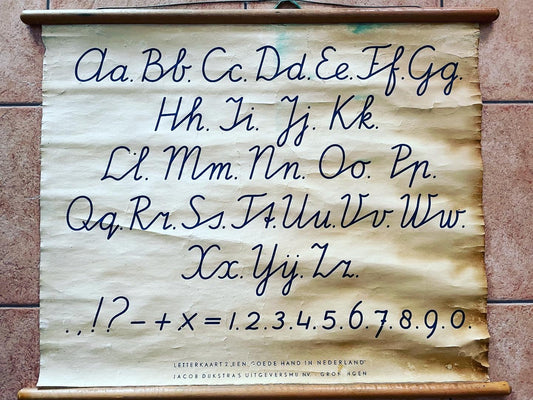 Aa. Bb. Cc. Dd. Ee. Ff. Gg.
Hh. Ii. Jj. Kk.
Ll. Mm. Nn. Oo. Pp.
Qq. Rr. Ss. Tt. Uu. Vv. Ww.
Xx. Yÿ. Zz.
.,!? - + x = 1.2.3.4.5.6.7.8.9.0.
LETTERKAART 2 „EEN GOEDE HAND IN NEDERLAND"
JACOB DIJKSTRA'S UITGEVERSMIJ NV. - GRONINGEN